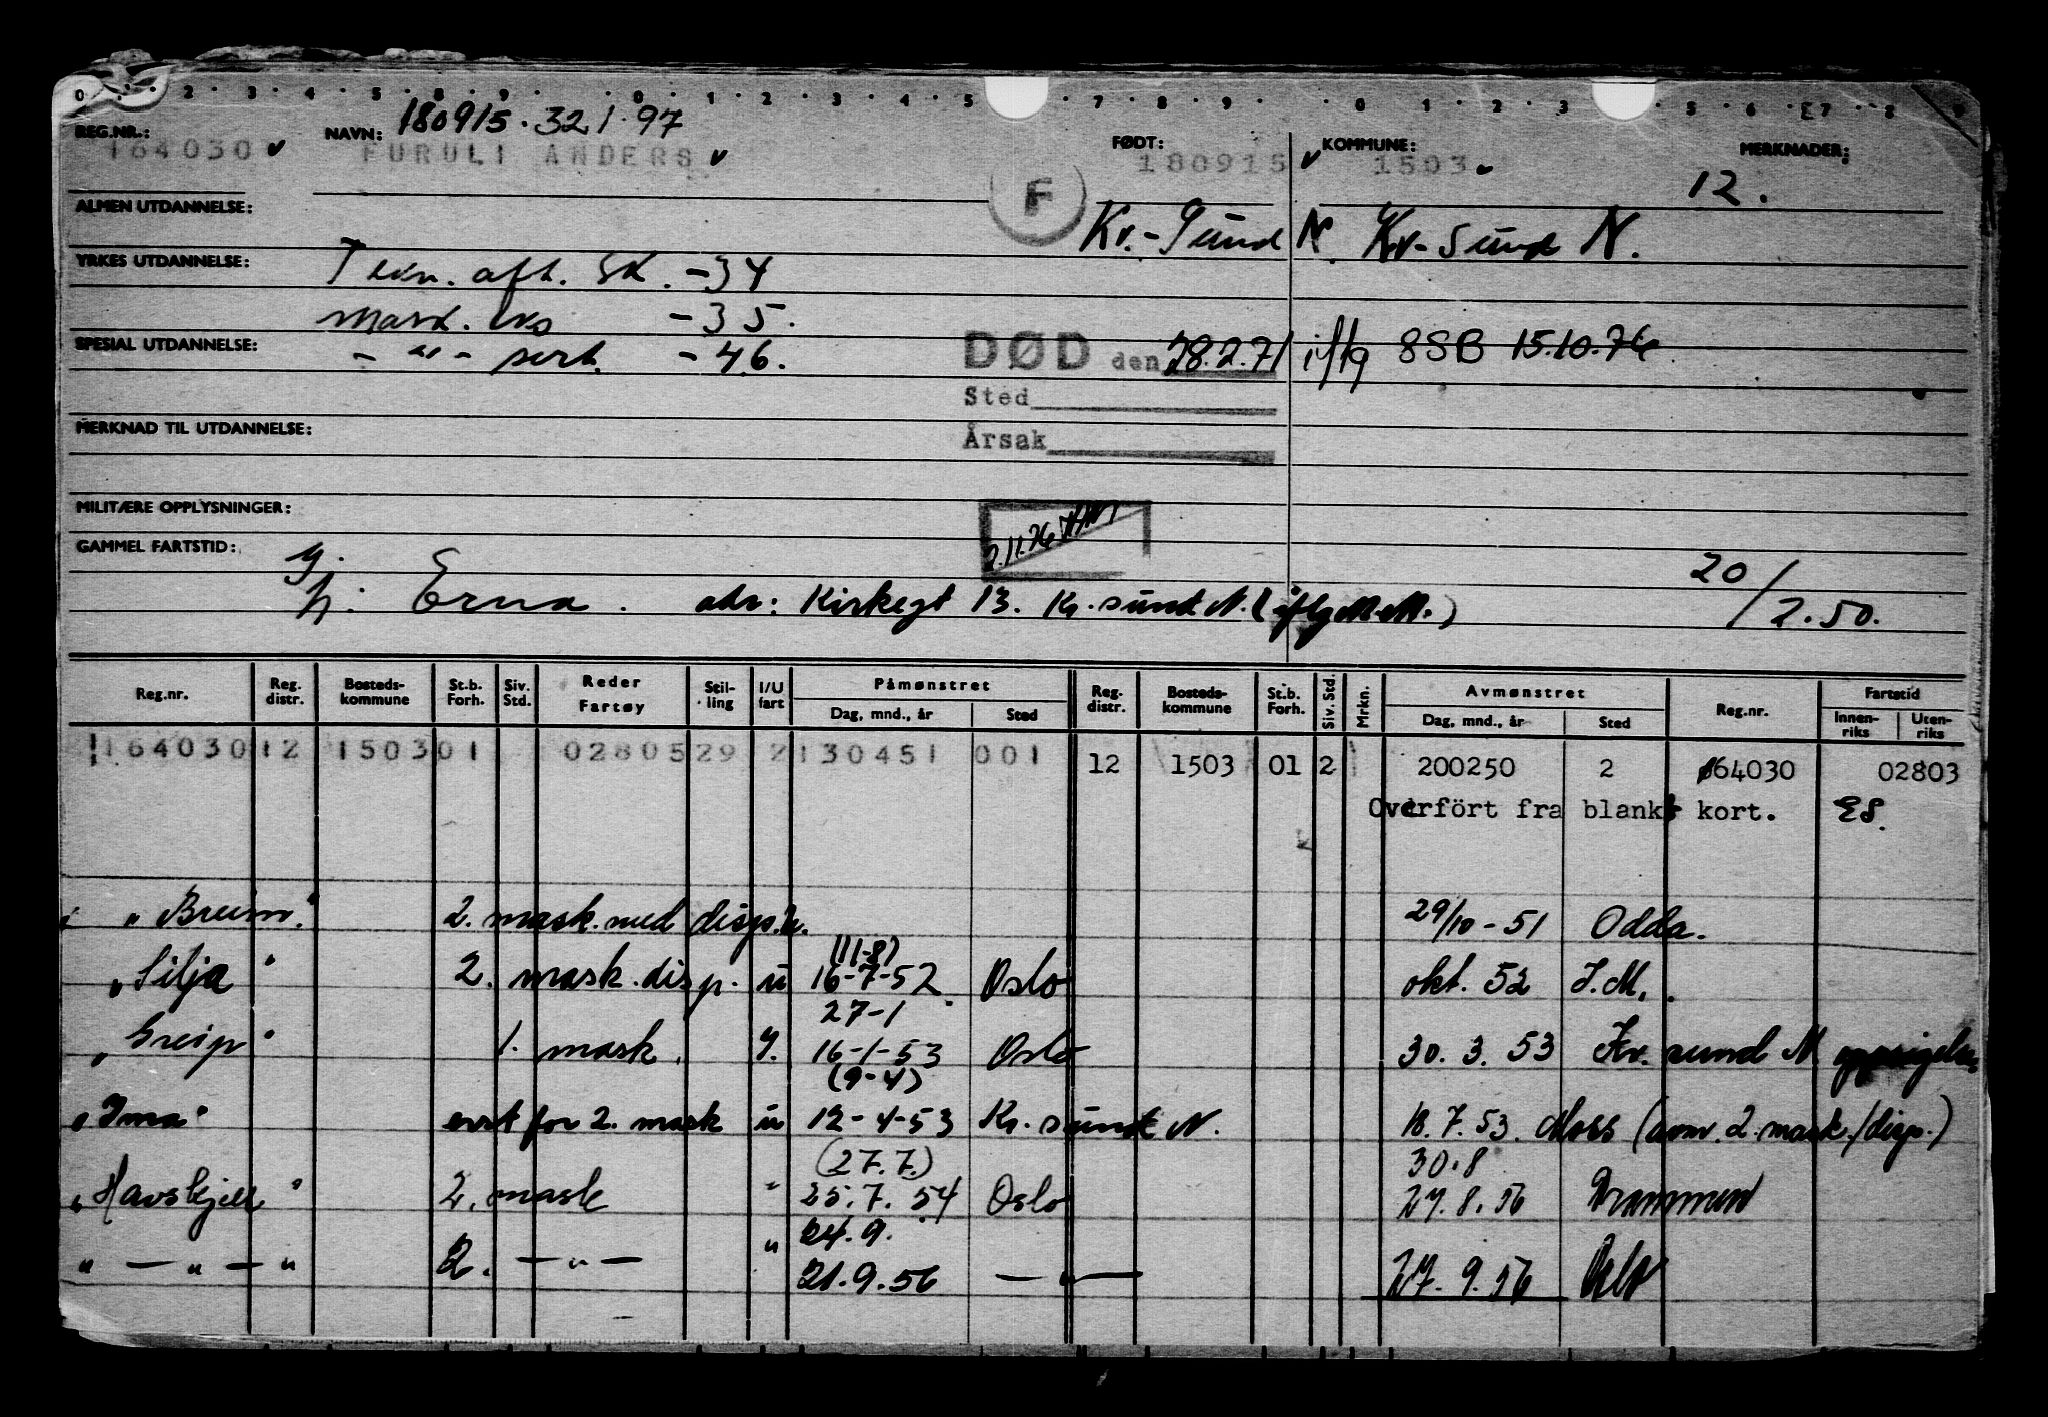 0 2 3 4 5 8 9 0 1 2 3 4 5 7 8 9 0 1 2 3 5 6 7 8 9
180915. 321.97
REG.NR.: NAVN: FØDT: KOMMUNE: MERKNADER:
164030 FURULI ANDERS 180915 1503
12.
F
ALMEN UTDANNELSE:
Kv.-Sund N. Kv-Sund N.
YRKES UTDANNELSE: Tekn. aft. sk. -34
mask. eks -35.
SPESIAL UTDANNELSE: -"- sert. -46.
DØD den 28.2.71 iflg SSB 15.10.76
Sted
Årsak
MERKNAD TIL UTDANNELSE:
MILITÆRE OPPLYSNINGER:
2.11.76
GAMMEL FARTSTID: g.
h: Erna. adr: Kirkegt 13. Kr.sund N. (iflg M.M.) 20/2.50.
Reg.nr. Reg. distr. Bosteds-kommune St.b. Forh. Siv. Std. Reder Fartøy Stil-ling I/U fart Påmønstret Dag, mnd., år Sted Reg. distr. Bosteds-kommune St.b. Forh. Siv. Std. Mrkn. Avmønstret Dag, mnd., år Sted Reg.nr. Fartstid Innen-riks Uten-riks
164030 12 1503 01 0280529 2 130451 001 12 1503 01 2 200250 2 164030 02803
Overfört fra blankt kort. ES.
"Breim." 2. mask. med disp. u. 29/10-51 Odda.
(11-8)
"Silja" 2. mask. disp. u 16-7-52. Oslo okt. 52 I.M.
27-1
"Greip" 1. mask. g. 16-1-53 Oslo 30.3.53 Kr.sund N oppsigelse
(9-4)
"Ima" erst for 2. mask u 12-4-53 Kr.sund N. 18.7.53. Moss (avm. 2. mask./disp.)
(27.7.) 30.8
"Havskjell" 2. mask " 25.7.54 Oslo 27.8.56 Drammen
24.9.
" — " — " 2. — " — " 21.9.56 — " — 27.9.56 Oslo